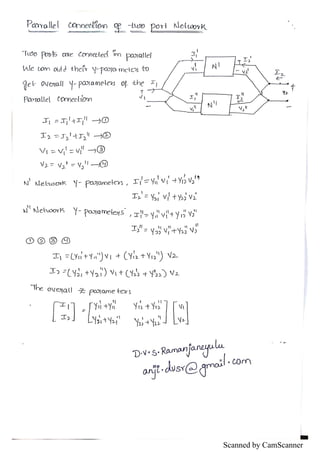 Parallel connection of -two port Network
Two ports are connected in parallel
We can add their y-parameters to
get overall y-parameters of the
Parallel connection
I1 I1' N' V1' I2' V2' V2
I1 I1" V1" N" I2" V2"
I1 = I1' + I1" → ①
I2 = I2' + I2" → ②
V1 = V1' = V1" → ③
V2 = V2' = V2" → ④
N' Network y-parameters, I1' = y11' V1' + y12' V2'
I2' = y21' V1' + y22' V2'
N" Network y-parameters, I1" = y11" V1" + y12" V2"
I2" = y21" V1" + y22" V2"
① ② ③ ④
I1 = (y11' + y11") V1 + (y12' + y12") V2
I2 = (y21' + y21") V1 + (y22' + y22") V2
The overall z parameters
[I1] = [y11' + y11" y12' + y12"] [V1]
[I2] [y21' + y21" y22' + y22"] [V2]
D.V.S. Ramanjaneyulu
anji.dvsr@gmail.com
Scanned by CamScanner